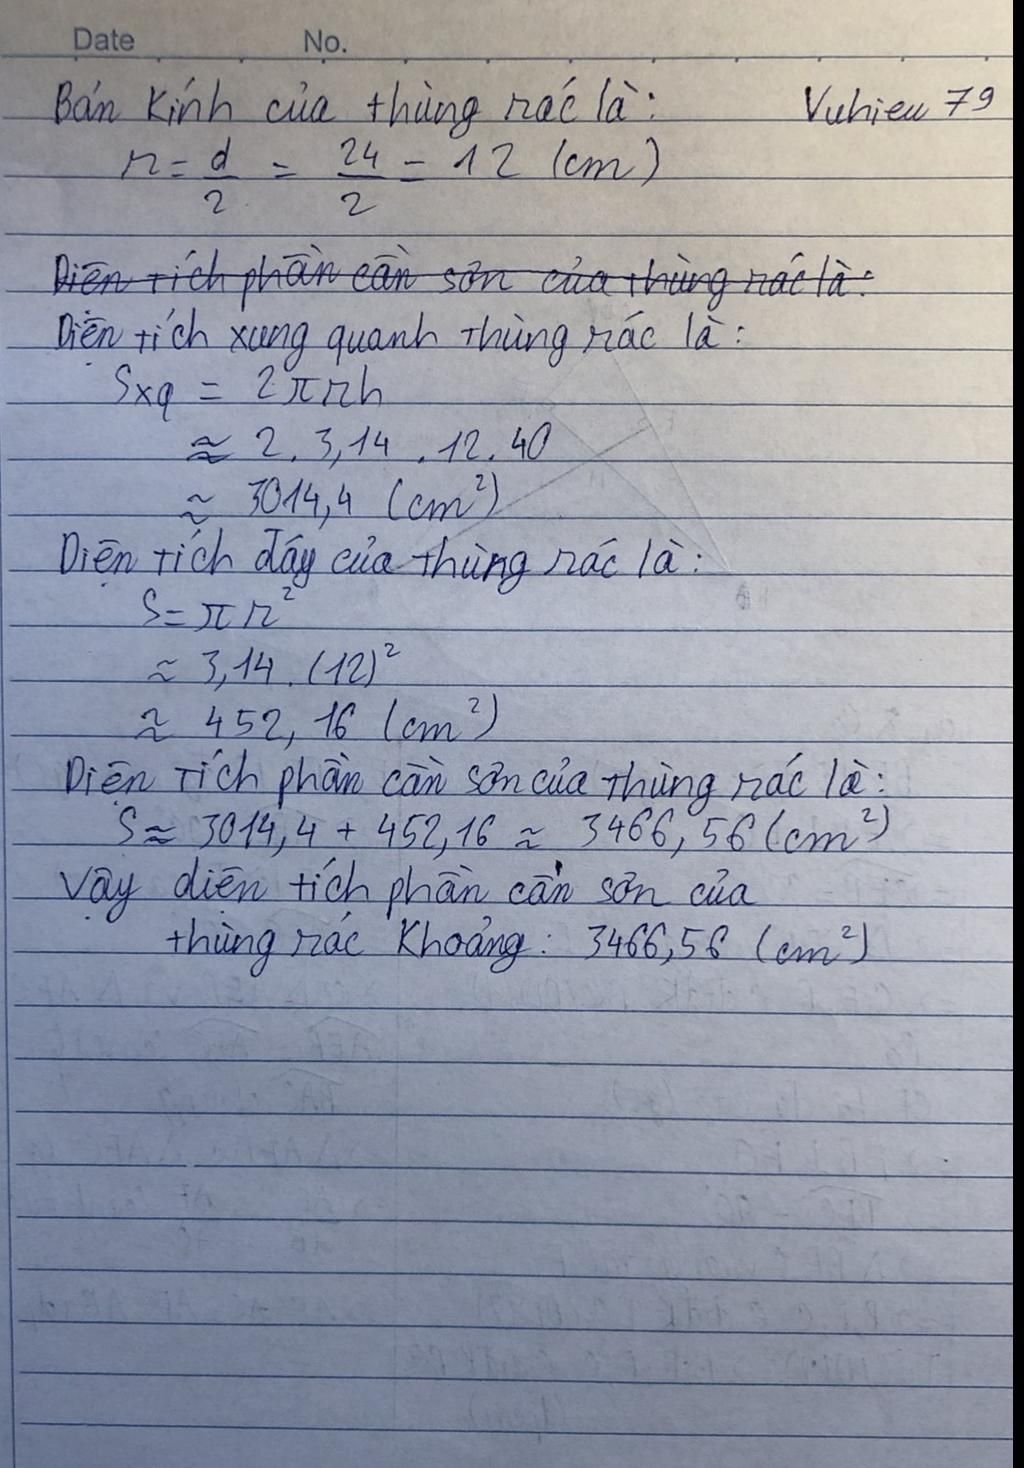 Date No.
Bán kính của thùng rác là: Vuhieu 79
r = d/2 = 24/2 = 12 (cm)
Diện tích phần cần sơn của thùng rác là:
Diện tích xung quanh thùng rác là:
Sxq = 2πrh
≈ 2. 3,14 . 12. 40
≈ 3014,4 (cm²)
Diện tích đáy của thùng rác là:
S = πr²
≈ 3,14. (12)²
≈ 452,16 (cm²)
Diện tích phần cần sơn của thùng rác là:
S ≈ 3014,4 + 452,16 ≈ 3466,56 (cm²)
Vậy diện tích phần cần sơn của
thùng rác khoảng: 3466,56 (cm²)